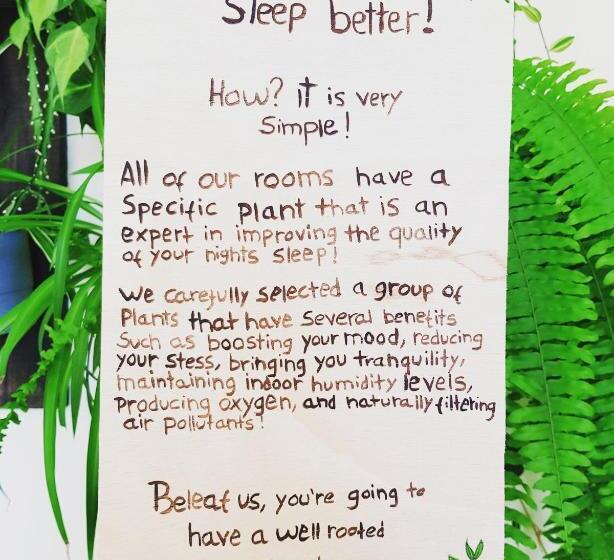 Sleep better!
How? it is very
Simple!
All of our rooms have a
Specific plant that is an
expert in improving the quality
of your nights sleep!
We carefully selected a group of
Plants that have several benefits
Such as boosting your mood, reducing
your stess, bringing you tranquility,
maintaining indoor humidity levels,
Producing oxygen, and naturally filtering
air pollutants!
Beleaf us, you're going to
have a well rooted